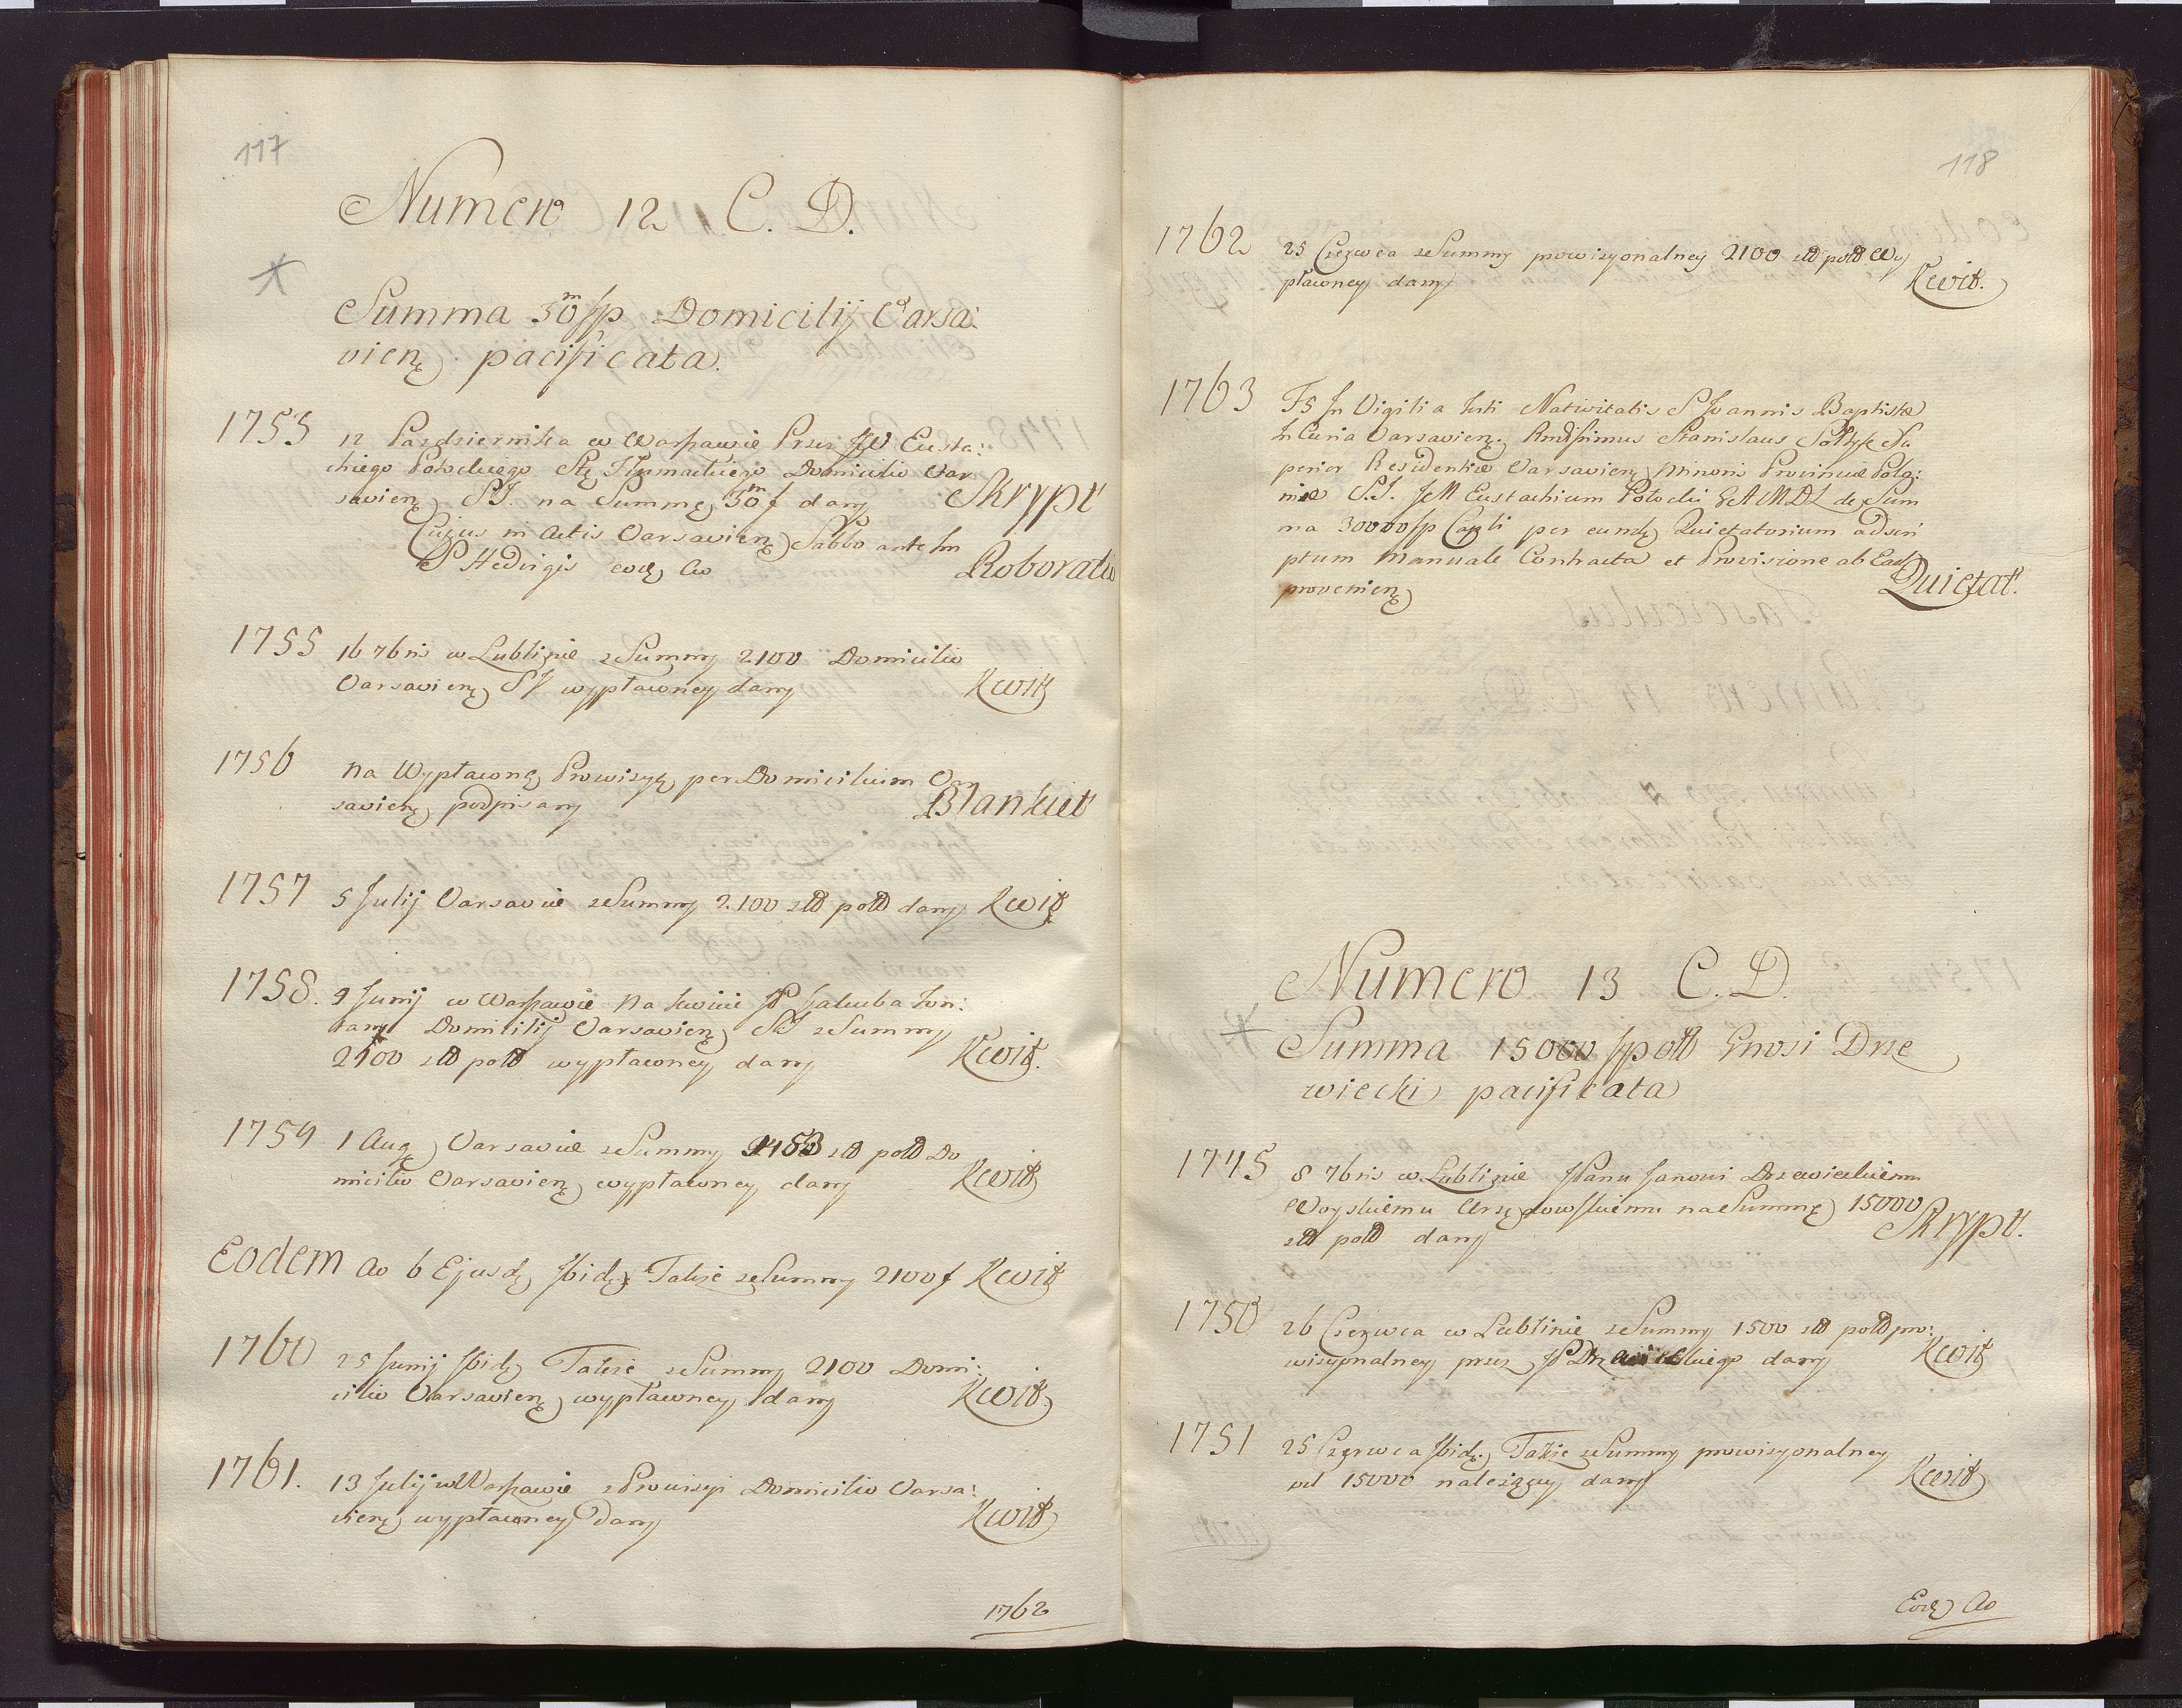 117
Numero 12 C. D.
Summa 30m fp Domicilij Varsa:
vienę pacificata.
1753 12 Pazdziernika w Warszawie Przez JW Eusta:
chiego Potockiego Stę Tłumackiego Domicilio Var
savienę S.J. na Summę 30m f dany Skrypt
Cujus in Actis Varsavienę Sabbo ante fm
S Hedvigis eodę Ao Roboratio
1755 16 7bris w Lublinie z Summy 2100 Domicilio
Varsavienę SJ wypłaconey dany Kwit
1756 Na Wypłaconą Prowizyę per Domicilium Var
savienę podpisany Blankiet
1757 5 Julij Varsaviæ z Summy 2100 złł połł dany Kwit
1758. 9 Junij w Warszawie Na kwicie JP Jakuba
Domicilij Varsavienę SJ z Summy
2100 złł połł wypłaconey dany Kwit.
1759 1 Augę Varsaviæ z Summy złł połł Do
micilio Varsavienę wypłaconey dany Kwit
Eodem Ao 6 Ejusdę Ibidę Także z Summy 2100 f Kwit
1760 25 Junij Ibidę Także z Summy 2100 Domi:
cilio Varsavienę wypłaconey dany Kwit.
1761. 13 Julij w Warszawie z Prowizyi Domicilio Varsa:
vienę wypłaconey dany Kwit
1762
118
1762 25 Czerwca z Summy prowizyonalney 2100 złł połł Wy
płaconey dany Kwit.
1763 F5 In Vigilia festi Nativitatis S Joannis Baptistæ
In Curia Varsavienę. Stanislaus Sołtyk Su
perior Residentiæ Varsavienę Minoris Provinciæ Polo:
niæ S.J. JM Eustachium Potocki GAMDL de Sum
ma 30000 fp Captli per eundę Quietatorium ad scri
ptum Manuale Contracta et Provisione ab Eadę
provenienę Quietat.
Numero 13 C. D.
Summa 15000 fpołł Gnosi Drze
wiecki pacificata
1745 8 7bris w Lublinie JPanu Janowi Drzewieckiemu
Woyskiemu Urzędowskiemu na Summę 15000
złł połł dany Skrypt.
1750 26 Czerwca w Lublinie z Summy 1500 złł połł pro:
wizyonalney przez JP Drzewieckiego dany Kwit
1751 25 Czerwca Ibidę. Także z Summy prowizyonalney
od 15000 należącey dany Kwit
Eodę Ao